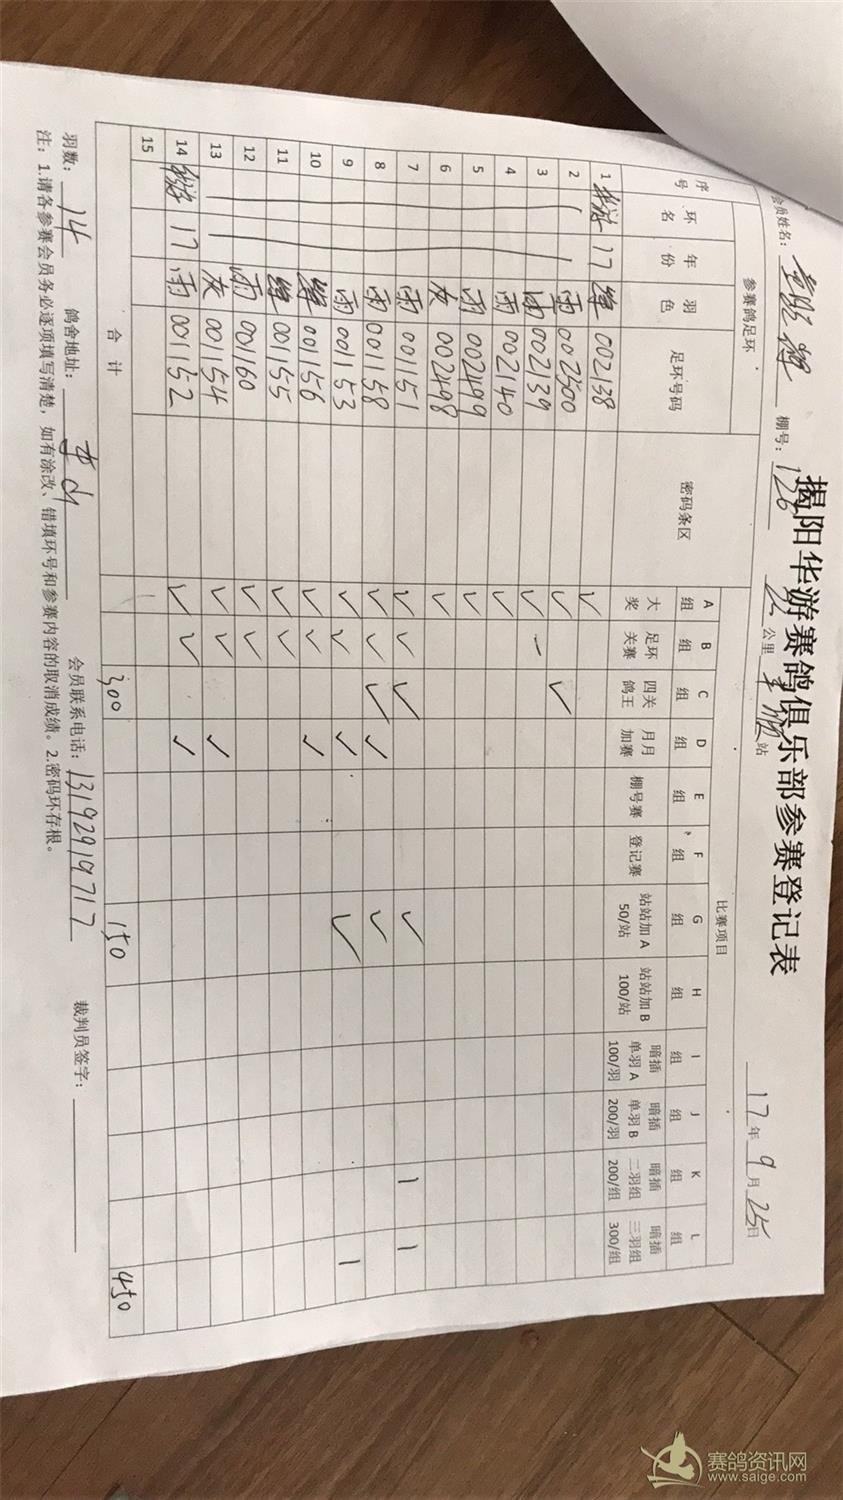 揭阳华游赛鸽俱乐部参赛登记表
会员姓名： 棚号：126 公里 站 17年9月25日
参赛鸽足环 比赛项目
序号 环名 年份 羽色 足环号码 密码条区 A组 B组 C组 D组 E组 F组 G组 H组 I组 J组 K组 L组
大奖 足环关赛 四关鸽王 月月加赛 棚号赛 登记赛 站站加A 50/站 站站加B 100/站 暗插单羽A 100/羽 暗插单羽B 200/羽 暗插二羽组 200/组 暗插三羽组 300/组
1 华游 17 绛 002138 ✓
2 雨 002500 ✓ ✓
3 雨 002139 ✓ 一
4 雨 002140 ✓
5 雨 002499 ✓
6 灰 002498 ✓
7 雨 001151 ✓ ✓ ✓ ✓ 1 1
8 雨 001158 ✓ ✓ ✓ ✓ ✓
9 雨 001153 ✓ ✓ ✓ ✓ 1
10 绛 001156 ✓ ✓ ✓
11 绛 001155 ✓ ✓
12 雨 001160 ✓ ✓
13 灰 001154 ✓ ✓ ✓
14 华游 17 雨 001152 ✓ ✓ ✓
15
合计 300 150 450
羽数：14 鸽舍地址： 会员联系电话：13192919717 裁判员签字：
注：1.请各参赛会员务必逐项填写清楚，如有涂改、错填环号和参赛内容的取消成绩。2.密码环存根。
赛鸽资讯网
www.saige.com